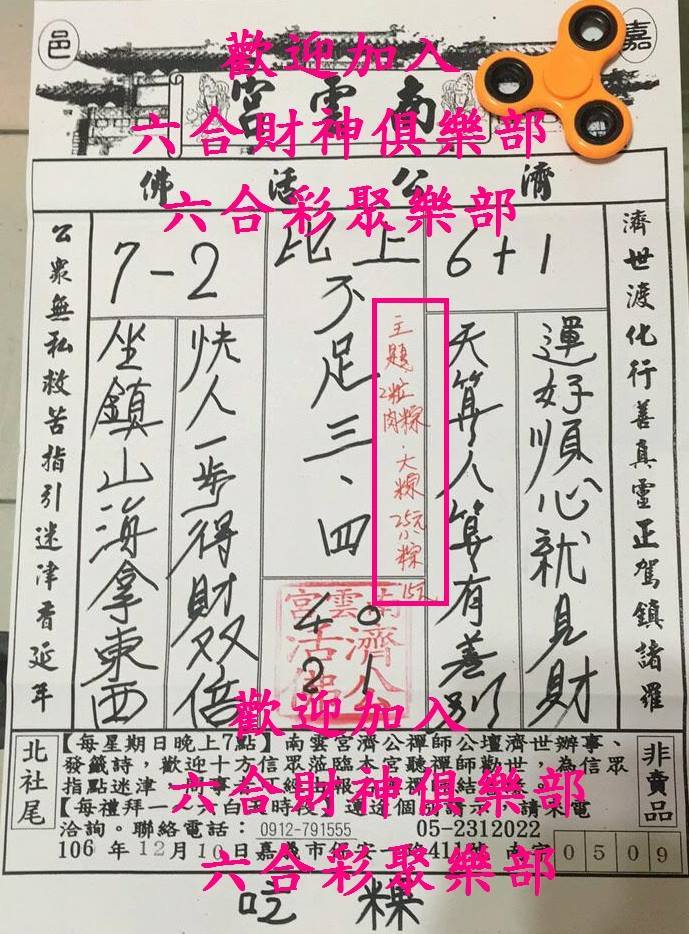 歡迎加入
邑
嘉
南雲宮
六合財神俱樂部
濟公活佛
六合彩聚樂部
濟世渡化行善真靈正駕鎮諸羅
6+1
運好順心就見財
天算人算有差別
比上
不足三、四
主題
2粒肉粽.大粿25元小粿15元
40
21
南雲宮
濟公
活佛
7-2
快人一步得財双倍
坐鎮山海拿東西
公眾無私救苦指引迷津香延年
歡迎加入
北社尾
【每星期日晚上7點】南雲宮濟公禪師公壇濟世辦事、
發籤詩,歡迎十方信眾蒞臨本宮聽禪師勸世,為信眾
指點迷津
六合財神俱樂部
【每禮拜一
請來電
洽詢。聯絡電話:0912-791555 05-2312022
106年12月10日嘉義市保安一路411號南宮
0509
非賣品
六合彩聚樂部
吃粿